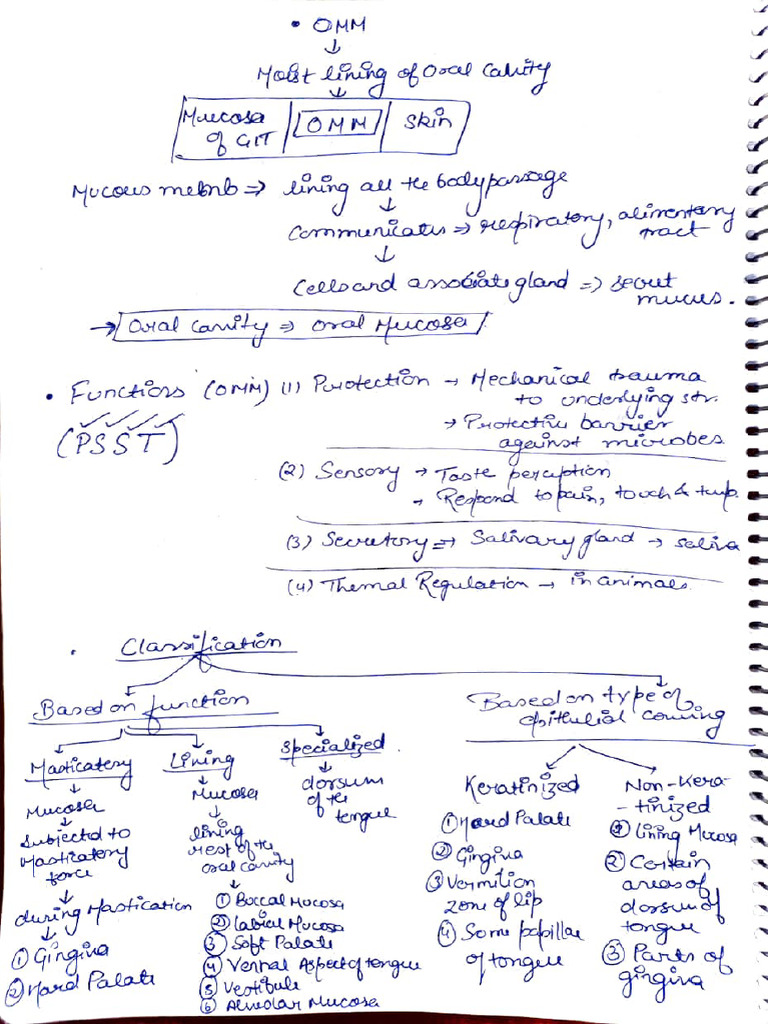 • OMM
↓
Moist lining of oral cavity
↓
Mucosa of GIT | OMM | Skin
Mucous memb ⇒ lining all the body passage
↓
Communicates ⇒ respiratory, alimentary
tract
↓
Cells and associate gland ⇒ secret
mucus.
→ Oral cavity ⇒ oral Mucosa
• Functions (OMM) (1) Protection → Mechanical trauma
to underlying str.
(PSST)
→ Protective barrier
against microbes
(2) Sensory → Taste perception
→ Respond to pain, touch & temp.
(3) Secretory ⇒ Salivary gland → saliva
(4) Thermal Regulation → in animals
• Classification
Based on function
Masticatory
↓
Mucosa
↓
Subjected to
Masticatory
force
↓
during Mastication
↓
① Gingiva
② Hard Palate
Lining
↓
Mucosa
↓
lining
rest of the
oral cavity
↓
① Buccal Mucosa
② Labial Mucosa
③ Soft Palate
④ Ventral Aspect of tongue
⑤ Vestibule
⑥ Alveolar Mucosa
Specialized
↓
dorsum
of the
tongue
Based on type of
epithelial covering
Keratinized
① Hard Palate
② Gingiva
③ Vermilion
zone of lip
④ Some papillae
of tongue
Non-Kera
-tinized
① Lining Mucosa
② Certain
areas of
dorsum of
tongue
③ Parts of
gingiva